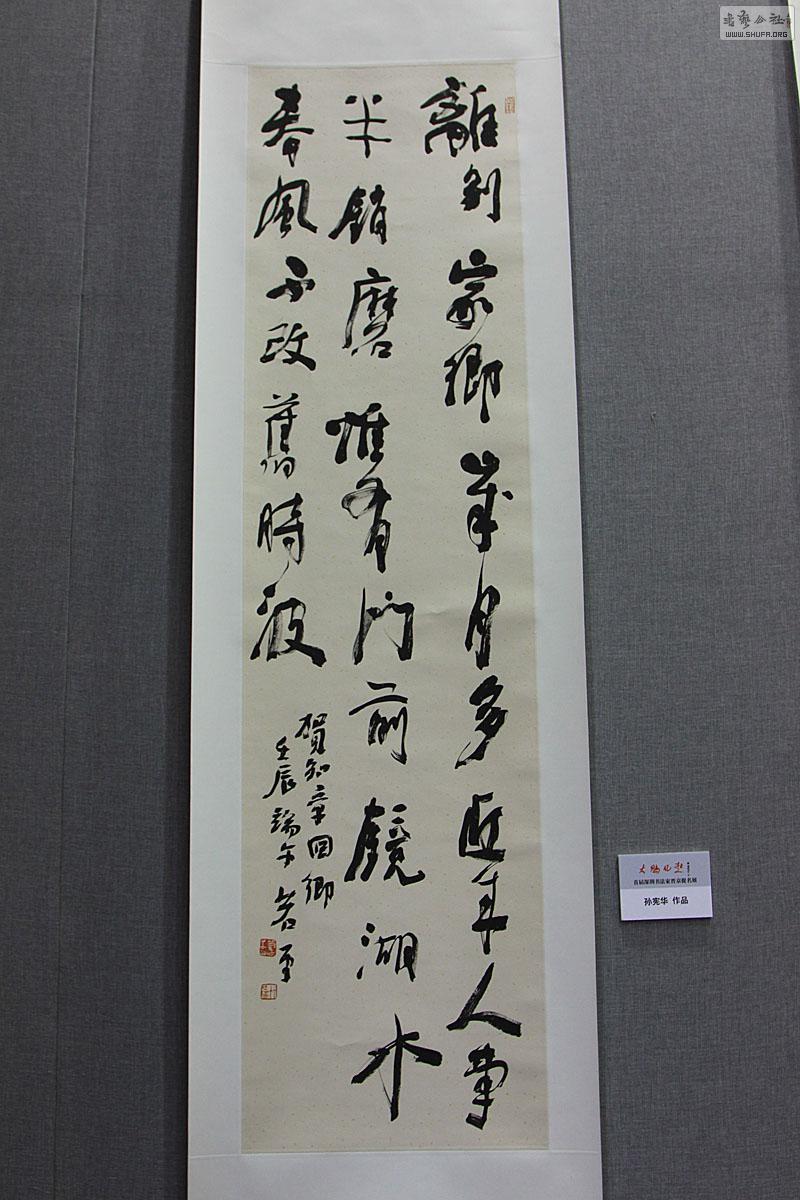 離別家鄉歲月多近來人事
半銷磨惟有門前鏡湖水
春風不改舊時波
賀知章回鄉
壬辰端午
首届深圳书法家晋京提名展
孙宪华 作品
书艺公社
WWW.SHUFA.ORG